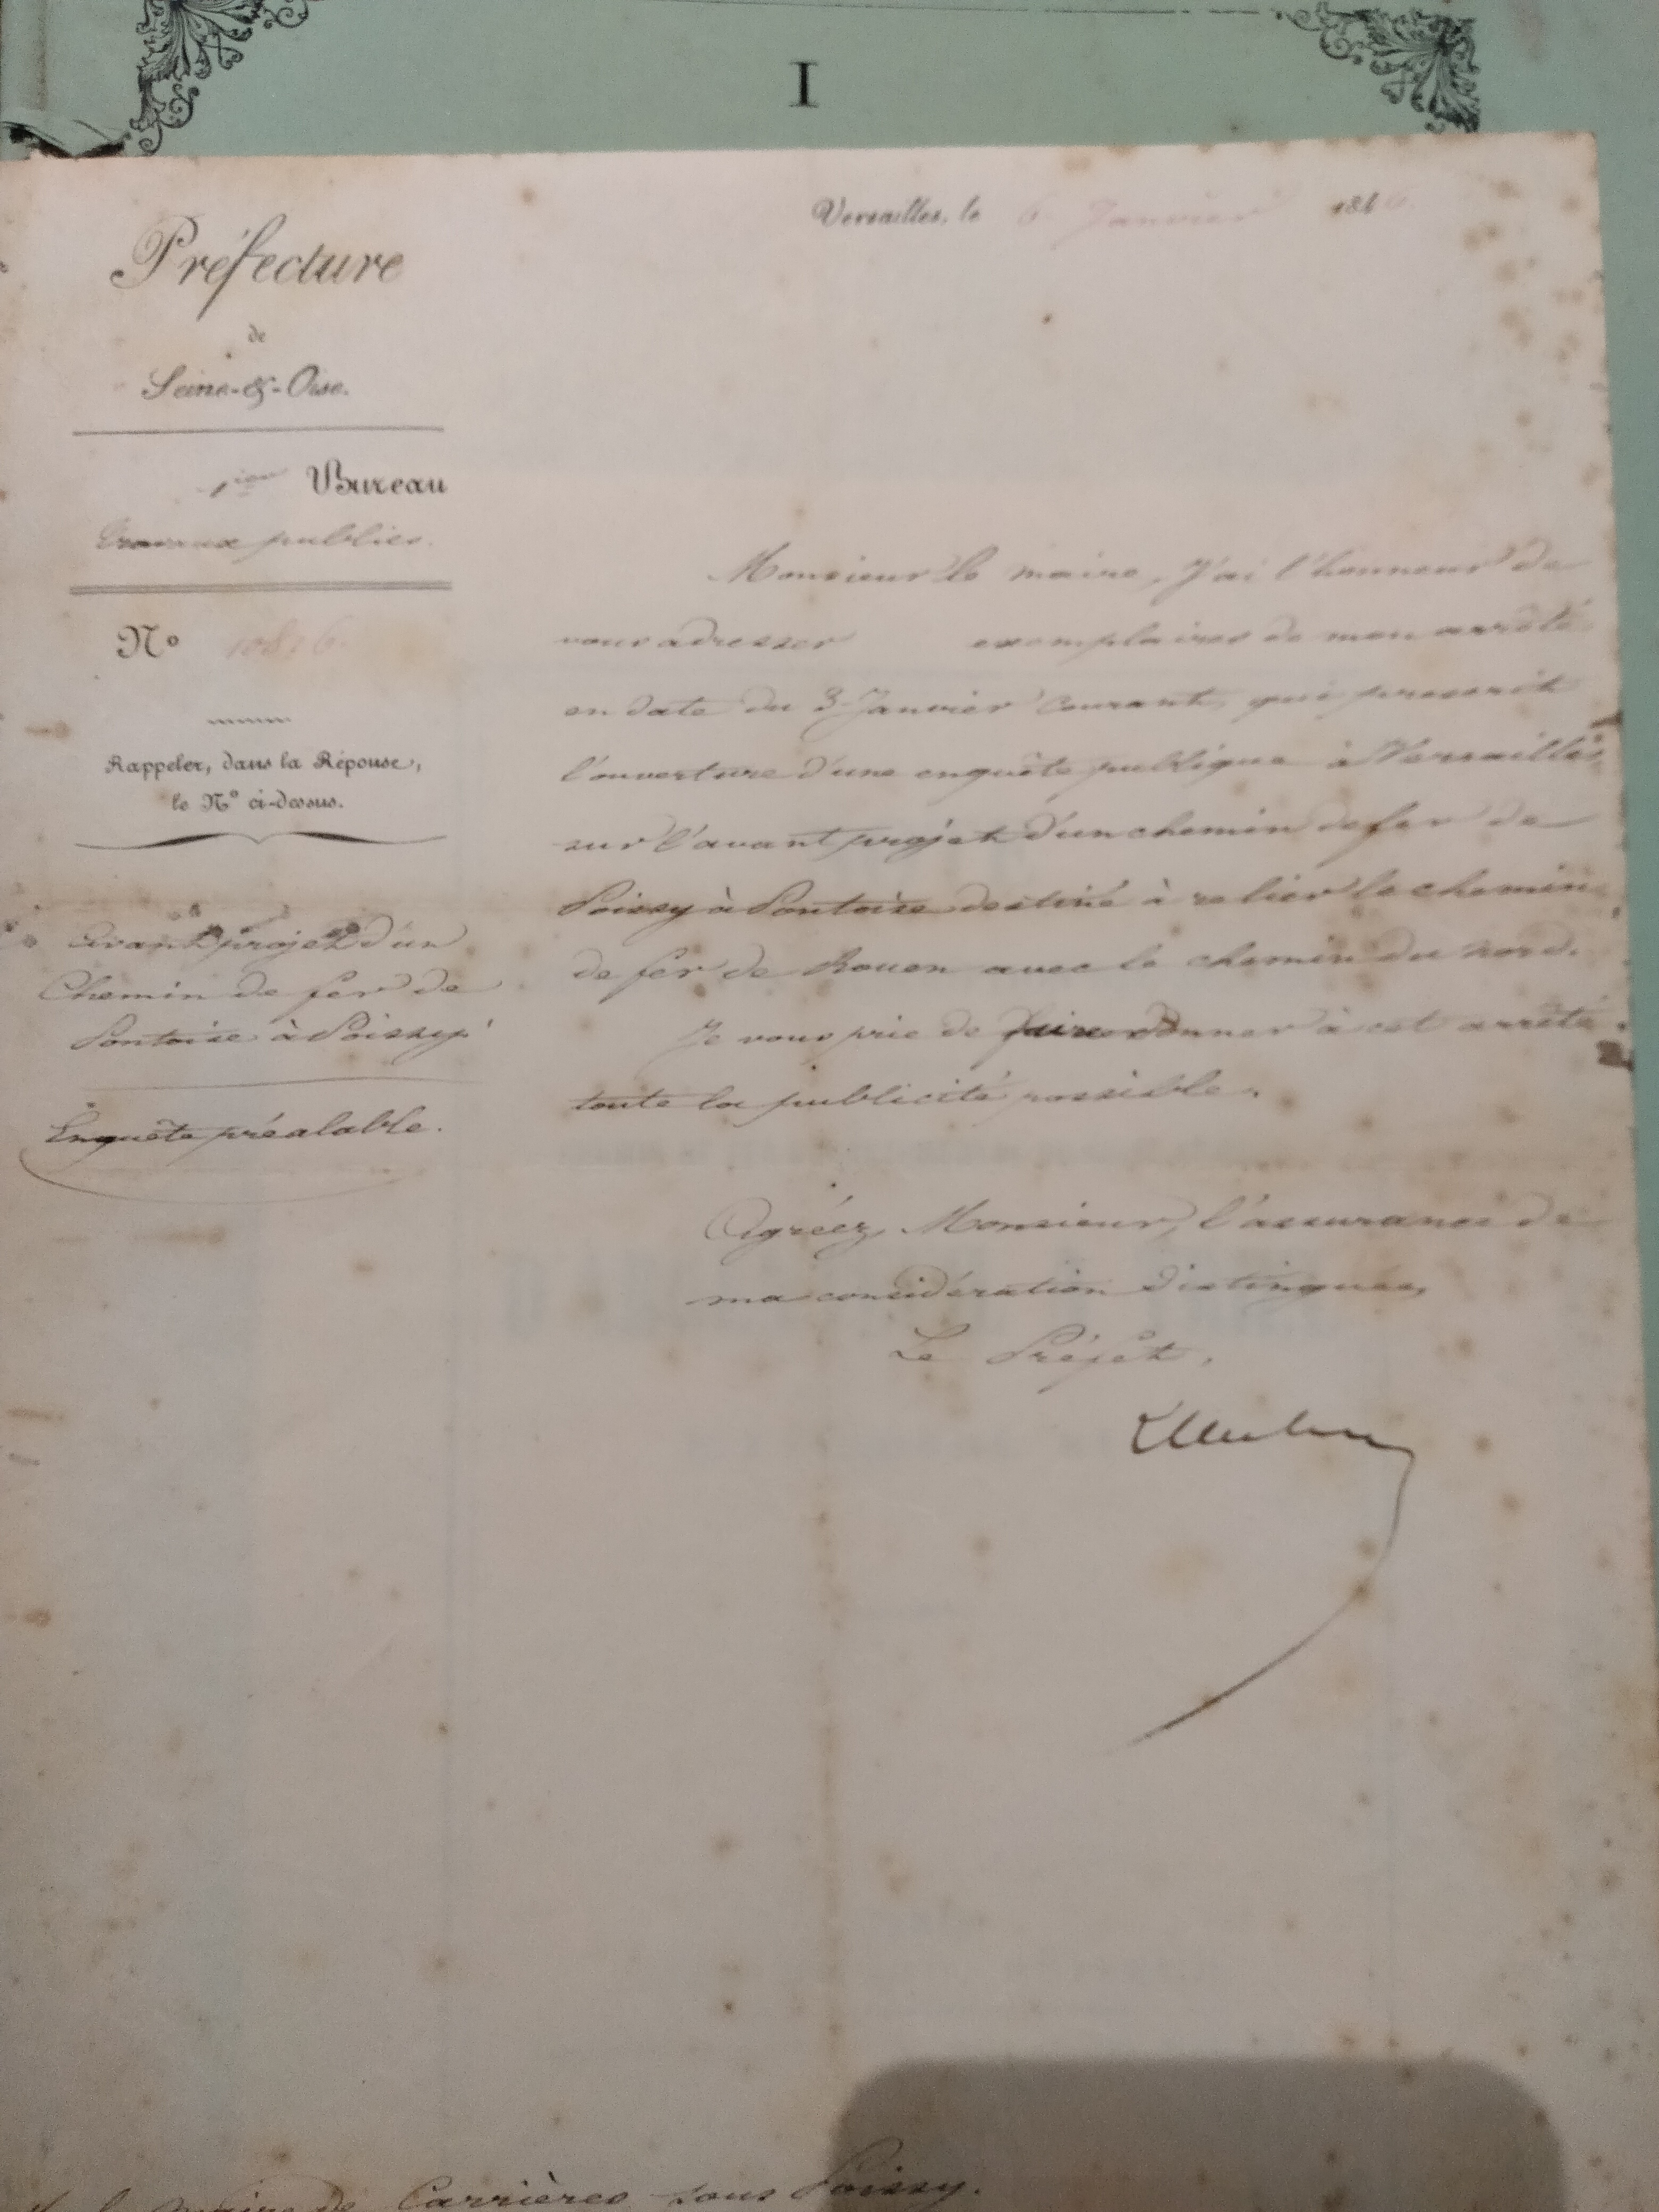 I
Versailles, le 6 Janvier 1846.
Préfecture
de
Seine-&-Oise.
1ier Bureau
Travaux publics.
N°
Rappeler, dans la Réponse,
le N° ci-dessus.
Avant projet d'un
Chemin de fer de
Pontoise à Poissy
Enquête préalable.
Monsieur le maire, J'ai l'honneur de
vous adresser exemplaires de mon arrêté
en date du 3 Janvier courant, qui prescrit
l'ouverture d'une enquête publique à Versailles
sur l'avant projet d'un chemin de fer de
Poissy à Pontoise destiné à relier le chemin
de fer de Rouen avec le chemin du nord.
Je vous prie de faire donner à cet arrêté
toute la publicité possible.
Agréez, Monsieur, l'assurance de
ma considération distinguée,
Le Préfet,
maire de Carrières sous Poissy.